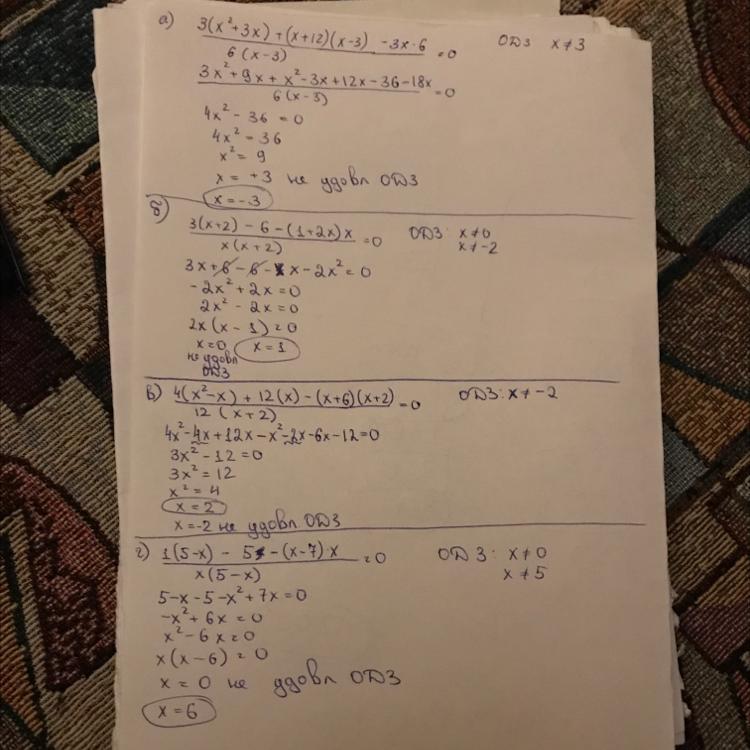 а) (3(x²+3x) + (x+12)(x-3) - 3x·6)/(6(x-3)) = 0 ОДЗ x≠3
(3x²+9x+x²-3x+12x-36-18x)/(6(x-3)) = 0
4x² - 36 = 0
4x² = 36
x² = 9
x = +3 не удовл ОДЗ
x = -3
б) (3(x+2) - 6 - (1+2x)x)/(x(x+2)) = 0 ОДЗ: x≠0
x≠-2
3x+6-6-x-2x²=0
-2x²+2x=0
2x²-2x=0
2x(x-1)=0
x=0 x=1
не удовл
ОДЗ
в) (4(x²-x) + 12(x) - (x+6)(x+2))/(12(x+2)) = 0 ОДЗ: x≠-2
4x²-4x+12x-x²-2x-6x-12=0
3x²-12=0
3x²=12
x²=4
x=2
x=-2 не удовл ОДЗ
г) (1(5-x) - 5 - (x-7)x)/(x(5-x)) = 0 ОДЗ: x≠0
x≠5
5-x-5-x²+7x=0
-x²+6x=0
x²-6x=0
x(x-6)=0
x = 0 не удовл ОДЗ
x=6